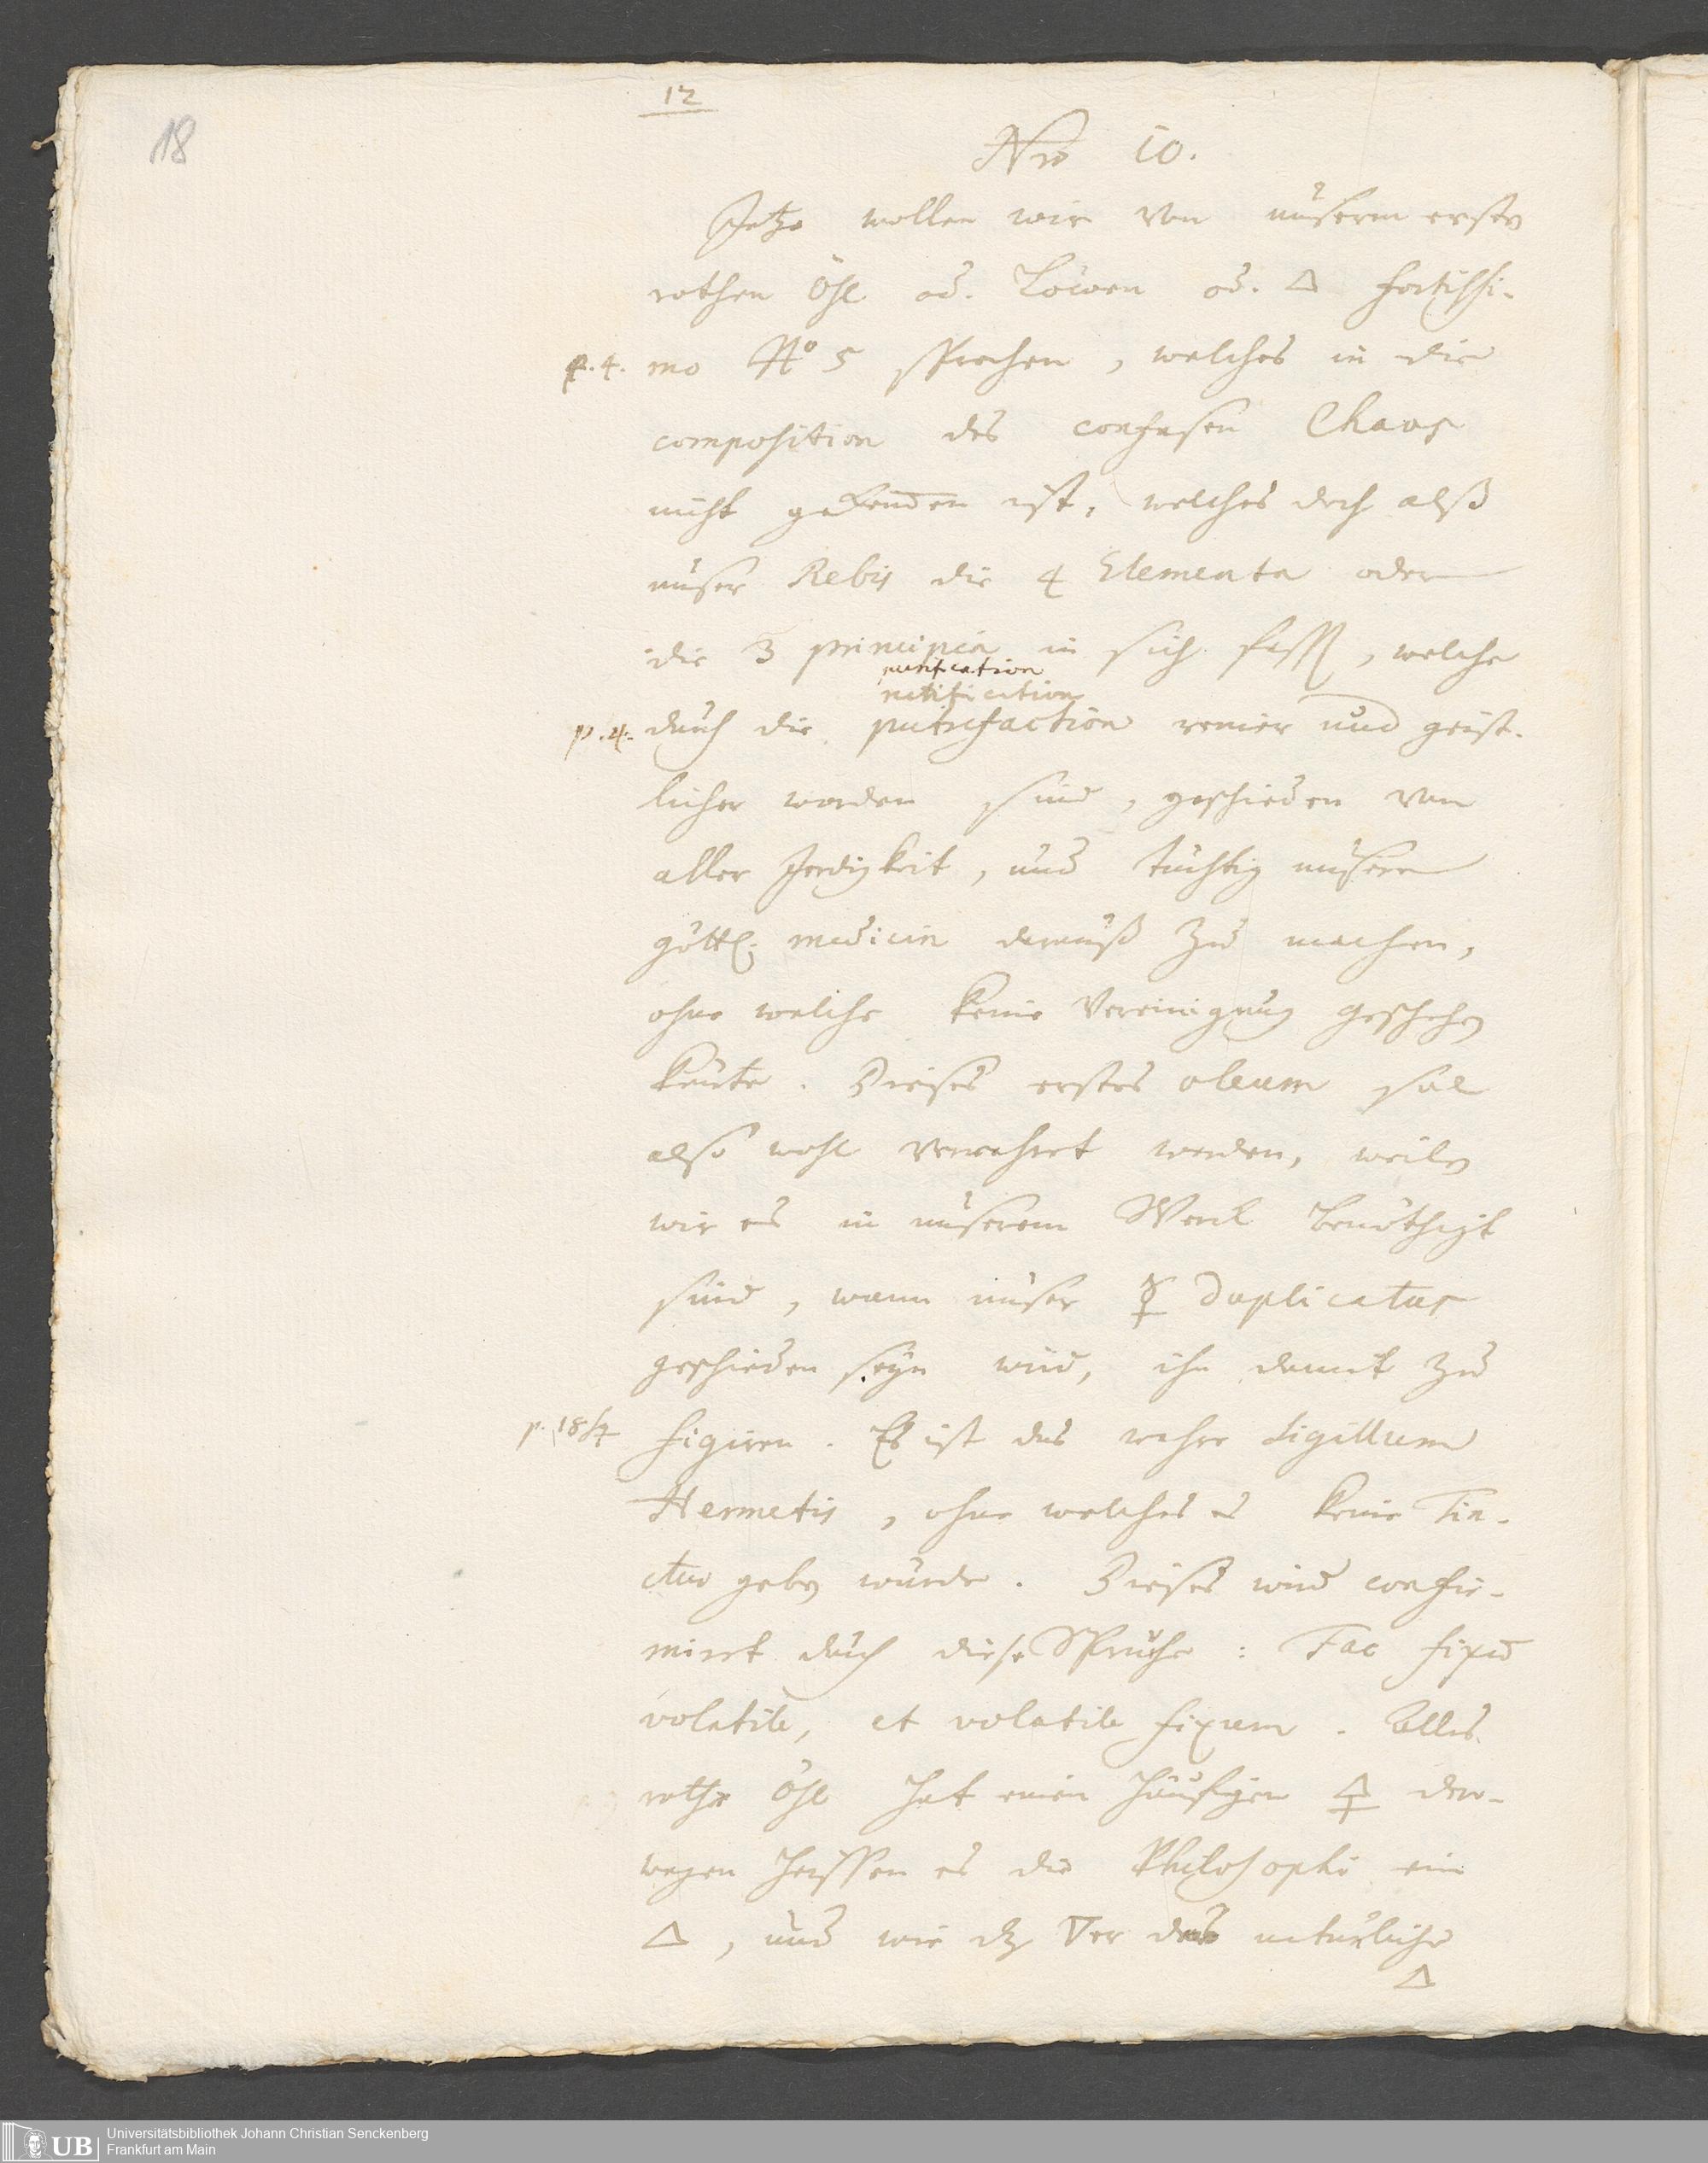 18
12
Nro 10.
Jetzo wollen wir von unserm ersten
rothen Öhl od. Löwen od. 🜂 fortissi-
p. 4. mo No 5 sprechen, welches in die
composition des confusen Chaos
nicht gekommen ist, welches doch alß
unser Rebis die 4 Elementa oder
die 3 principia in sich fasst, welche
purification
rectification
p. 4. durch die putrefaction reiner und geist-
licher worden sind, geschieden von
aller Irrdigkeit, und tüchtig unsere
göttl. medicin darauß zu machen,
ohne welche keine Vereinigung geschehen
könte. Dieses erstes oleum sol
also wohl verwahret werden, weilen
wir es in unserem Werk benöthigt
sind, wann unser ☿ duplicatus
geschieden seyn wird, ihn damit zu
p. 18/4 figiren. Es ist das wahre Sigillum
Hermetis, ohne welches es keine Tin-
ctur geben würde. Dieses wird confir-
mirt durch diese Sprüche: Fac fixum
volatile, et volatile fixum. Alles
rothe Öhl hat einen häufigen 🜍 der-
wegen heissen es die Philosophi ein
🜂, und wie dz 🜄er das natürliche
🜂
Universitätsbibliothek Johann Christian Senckenberg
Frankfurt am Main
UB